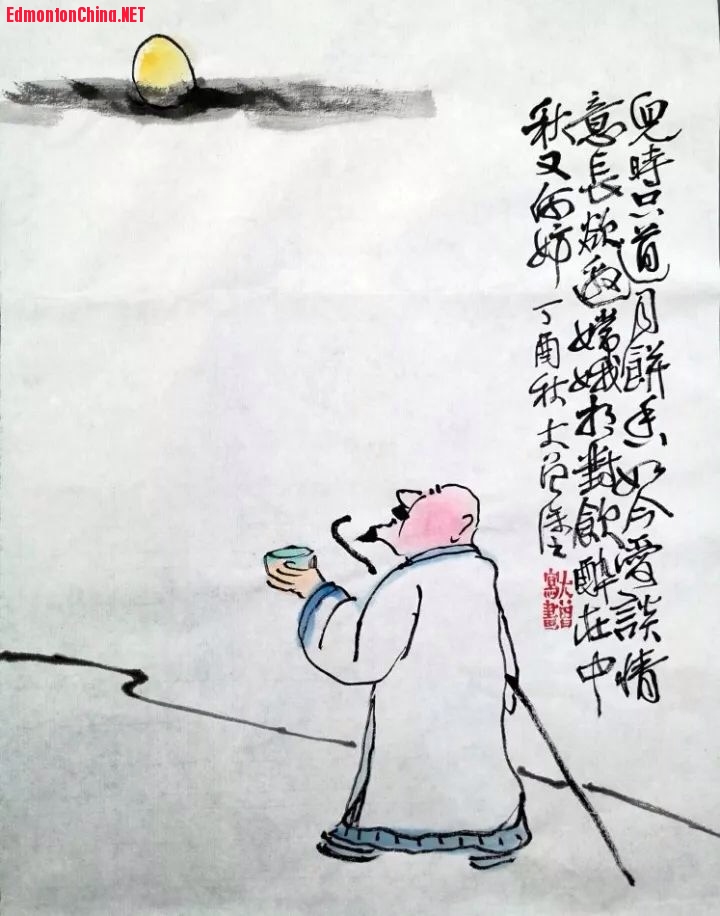 EdmontonChina.NET
兒時只道月餅香如今愛談情
意長欲邀嫦娥相對飲醉在中
秋又何妨
丁酉秋大曾
大曾
寫畫